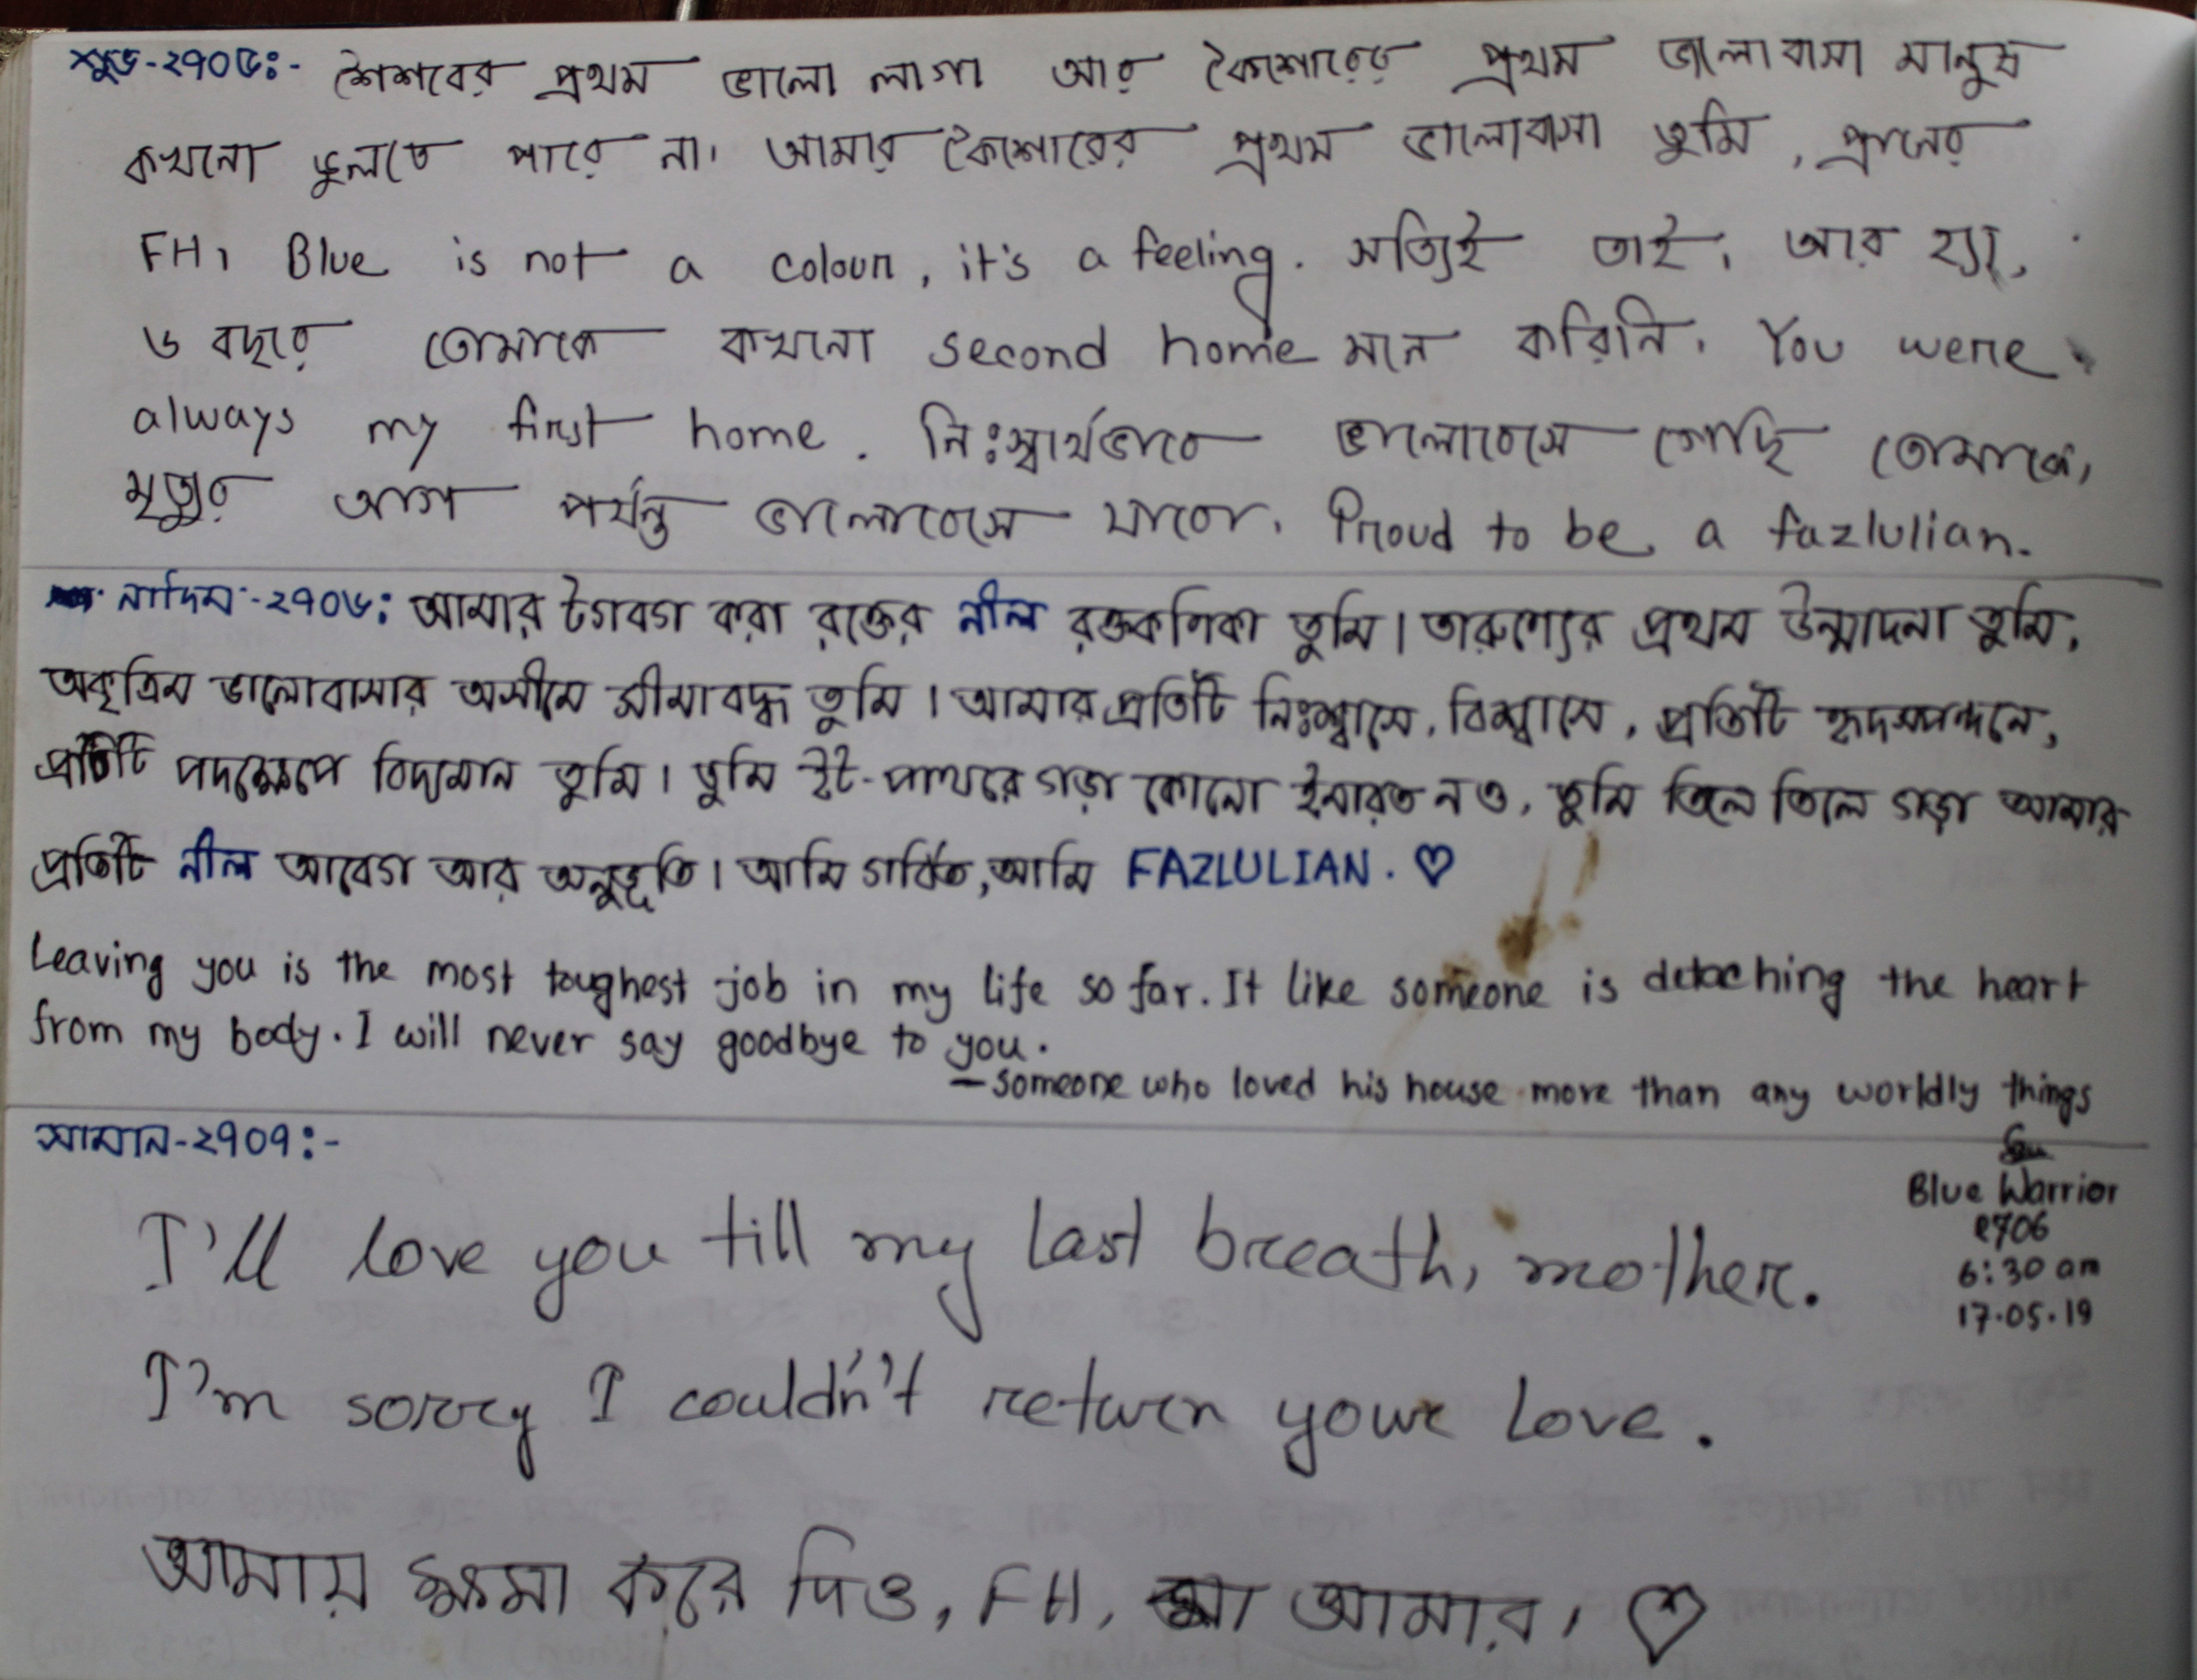 শুভ-২৭০৫ঃ- শৈশবের প্রথম ভালো লাগা আর কৈশোরের প্রথম ভালোবাসা মানুষ
কখনো ভুলতে পারে না। আমার কৈশোরের প্রথম ভালোবাসা তুমি, প্রানের
FH। Blue is not a colour, it's a feeling. সত্যিই তাই। আর হ্যা,
৬ বছরে তোমাকে কখনো second home মনে করিনি। You were
always my first home. নিঃস্বার্থভাবে ভালোবেসে গেছি তোমাকে,
মৃত্যুর আগ পর্যন্ত ভালোবেসে যাবো। Proud to be a fazlulian.
নাদিম-২৭০৬ঃ আমার টগবগ করা রক্তের নীল রক্তকণিকা তুমি। তারুণ্যের প্রথম উন্মাদনা তুমি,
অকৃত্রিম ভালোবাসার অসীমে সীমাবদ্ধ তুমি। আমার প্রতিটি নিঃশ্বাসে, বিশ্বাসে, প্রতিটি হৃদস্পন্দনে,
প্রতিটি পদক্ষেপে বিদ্যমান তুমি। তুমি ইট-পাথরে গড়া কোনো ইমারত নও, তুমি তিলে তিলে গড়া আমার
প্রতিটি নীল আবেগ আর অনুভূতি। আমি গর্বিত, আমি FAZLULIAN. ♡
Leaving you is the most toughest job in my life so far. It like someone is detaching the heart
from my body. I will never say goodbye to you.
— someone who loved his house more than any worldly things
Blue Warrior
2706
6:30 am
17.05.19
সামান-২৭০৭ঃ-
I'll love you till my last breath, mother.
I'm sorry I couldn't return your love.
আমায় ক্ষমা করে দিও, FH, আমার। ♡